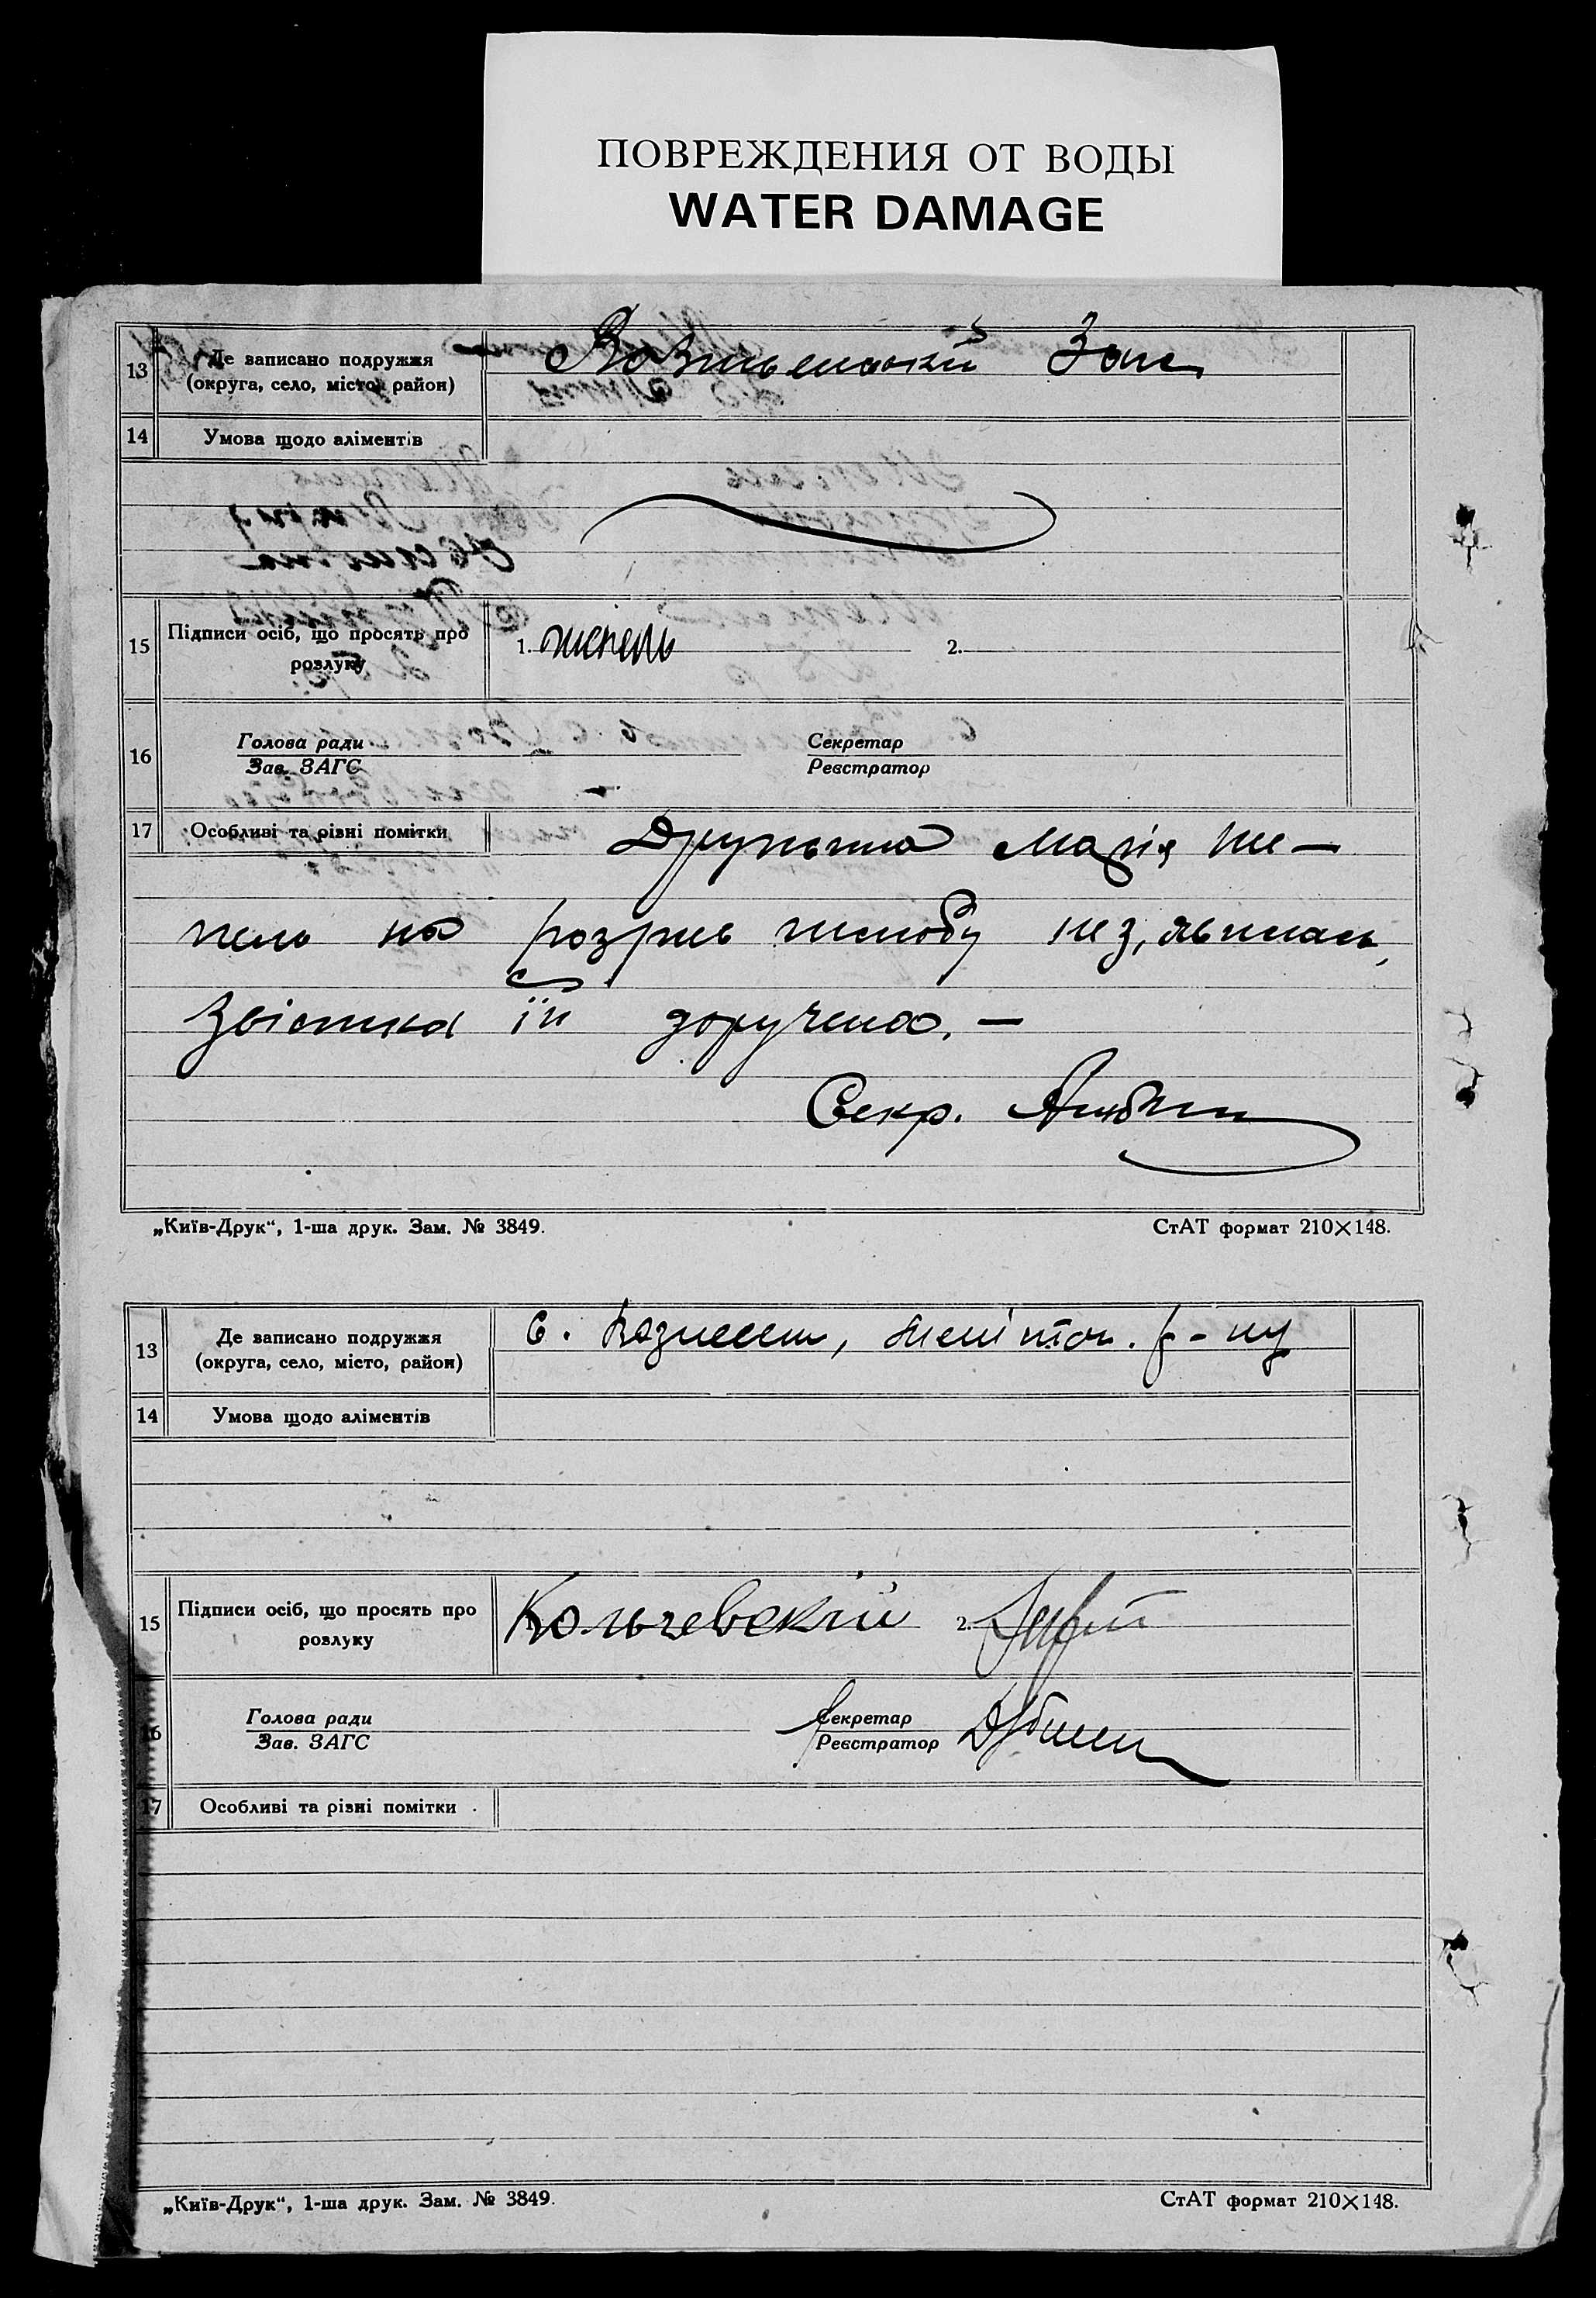 ПОВРЕЖДЕНИЯ ОТ ВОДЫ
WATER DAMAGE
13 Де записано подружжя
(округа, село, місто, район)
14 Умова щодо аліментів
15 Підписи осіб, що просять про
розлуку
1. 2.
16 Голова ради Секретар
Зав. ЗАГС Реєстратор
17 Особливі та різні помітки
Дружина Марія Ше–
пель на розрив шлюбу не з,явилась,
звістка їй доручена. –
Секр.
„Київ-Друк“, 1-ша друк. Зам. № 3849. СтАТ формат 210×148.
13 Де записано подружжя
(округа, село, місто, район)
с. р-ну
14 Умова щодо аліментів
15 Підписи осіб, що просять про
розлуку
Кольчевскій 2.
16 Голова ради Секретар
Зав. ЗАГС Реєстратор
17 Особливі та різні помітки
„Київ-Друк“, 1-ша друк. Зам. № 3849. СтАТ формат 210×148.